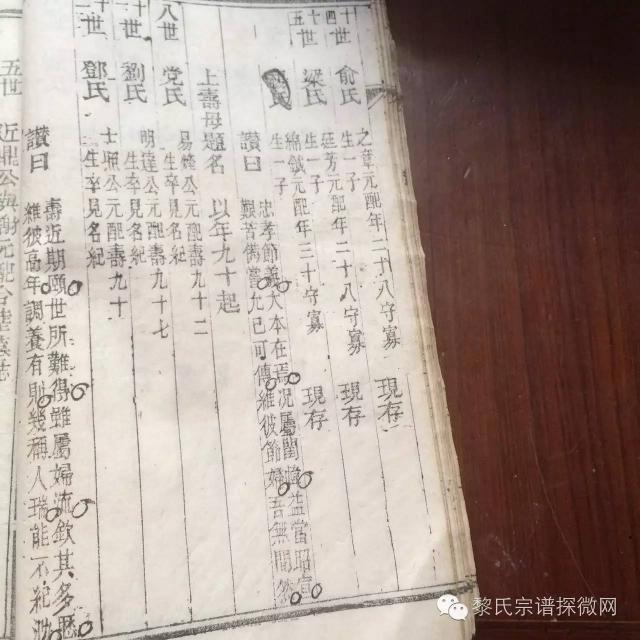 十四世 俞氏 之音元配年二十八守寡 現存
生一子
十世 梁氏 廷芳元配年二十八守寡 現存
生一子
五世 氏 綿 元配年二十守寡 現存
生一子
讚曰 忠孝節義大本在焉況屬閨 益當昭
艱苦 嘗尤已可傳維彼節婦吾無間然
上壽母題名 以年九十起
八世 党氏 易 公元配壽九十二
生卒見名紀
十世 劉氏 明達公元配壽九十七
生卒見名紀
十一世 鄧氏 士 公元配壽九十
生卒見名紀
讚曰 壽近期頤世所難得雖屬婦流欽其多歷
維彼高年調養有則幾稱人瑞能不紀
五世 近 公
黎氏宗谱探微网